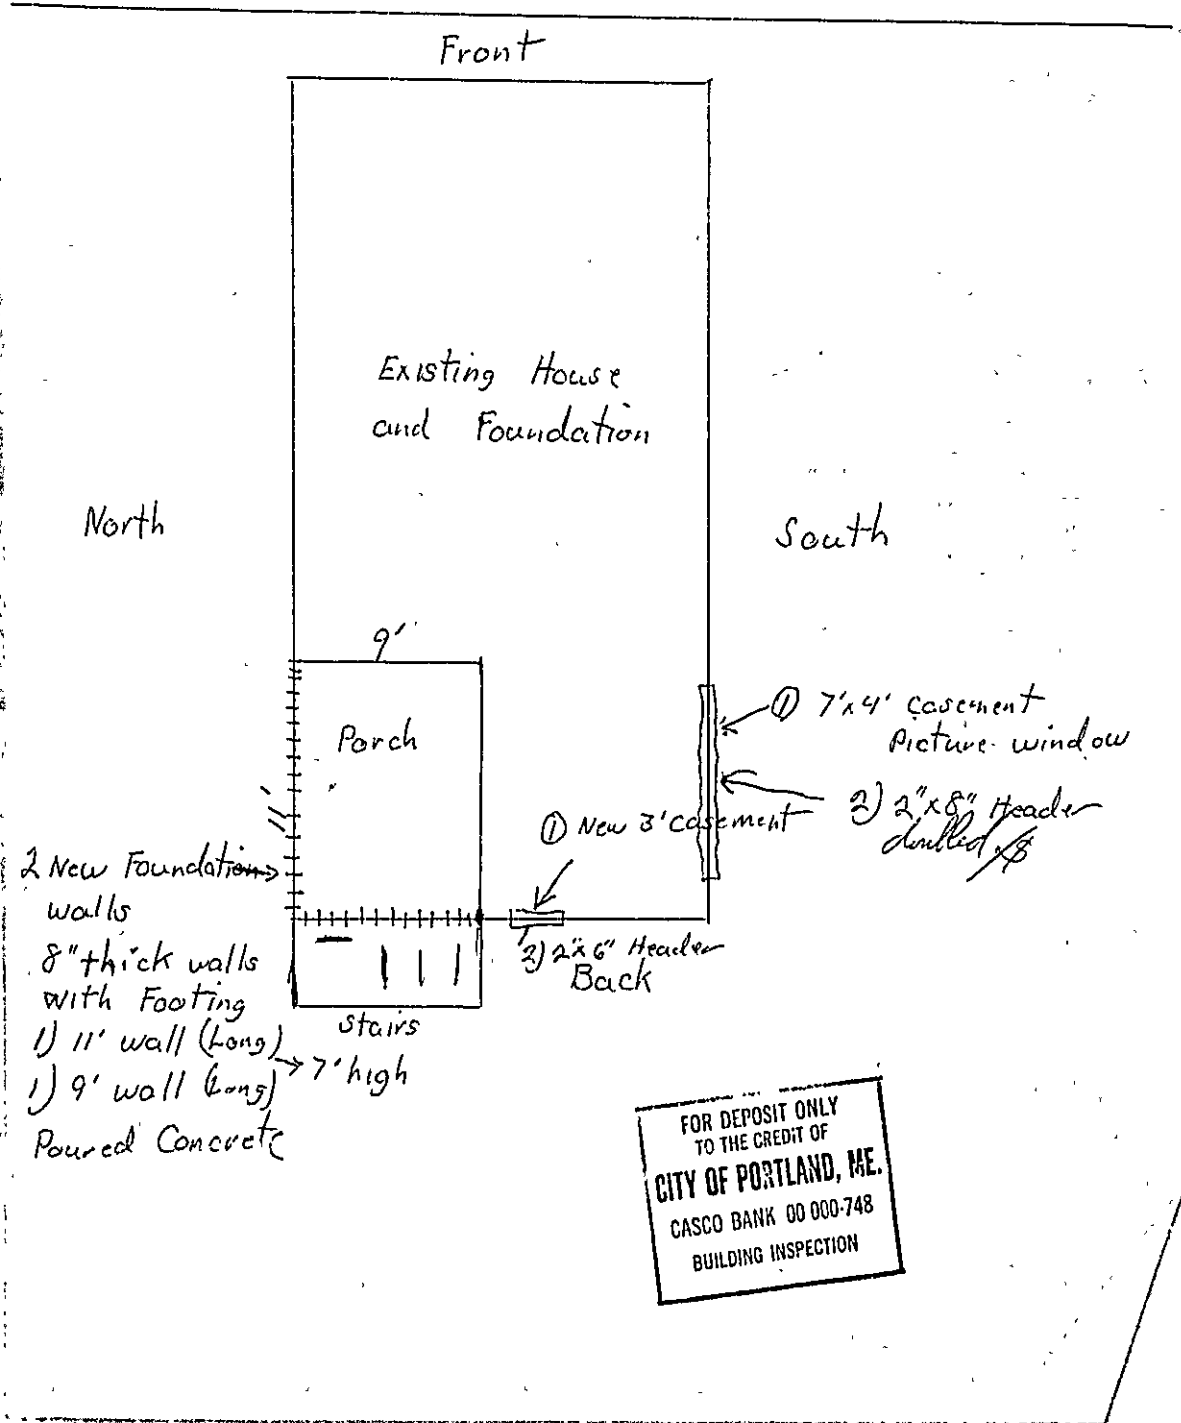 Front
Existing House
and Foundation
North
South
9'
Porch
11'
① 7'x4' casement
Picture window
2) 2"x8" Header
doubled
① New 3' casement
2 New Foundation
walls
8" thick walls
with Footing
1) 11' wall (Long)
1) 9' wall (Long)
7' high
Poured Concrete
2) 2"x6" Header
Back
stairs
FOR DEPOSIT ONLY
TO THE CREDIT OF
CITY OF PORTLAND, ME.
CASCO BANK 00 000-748
BUILDING INSPECTION